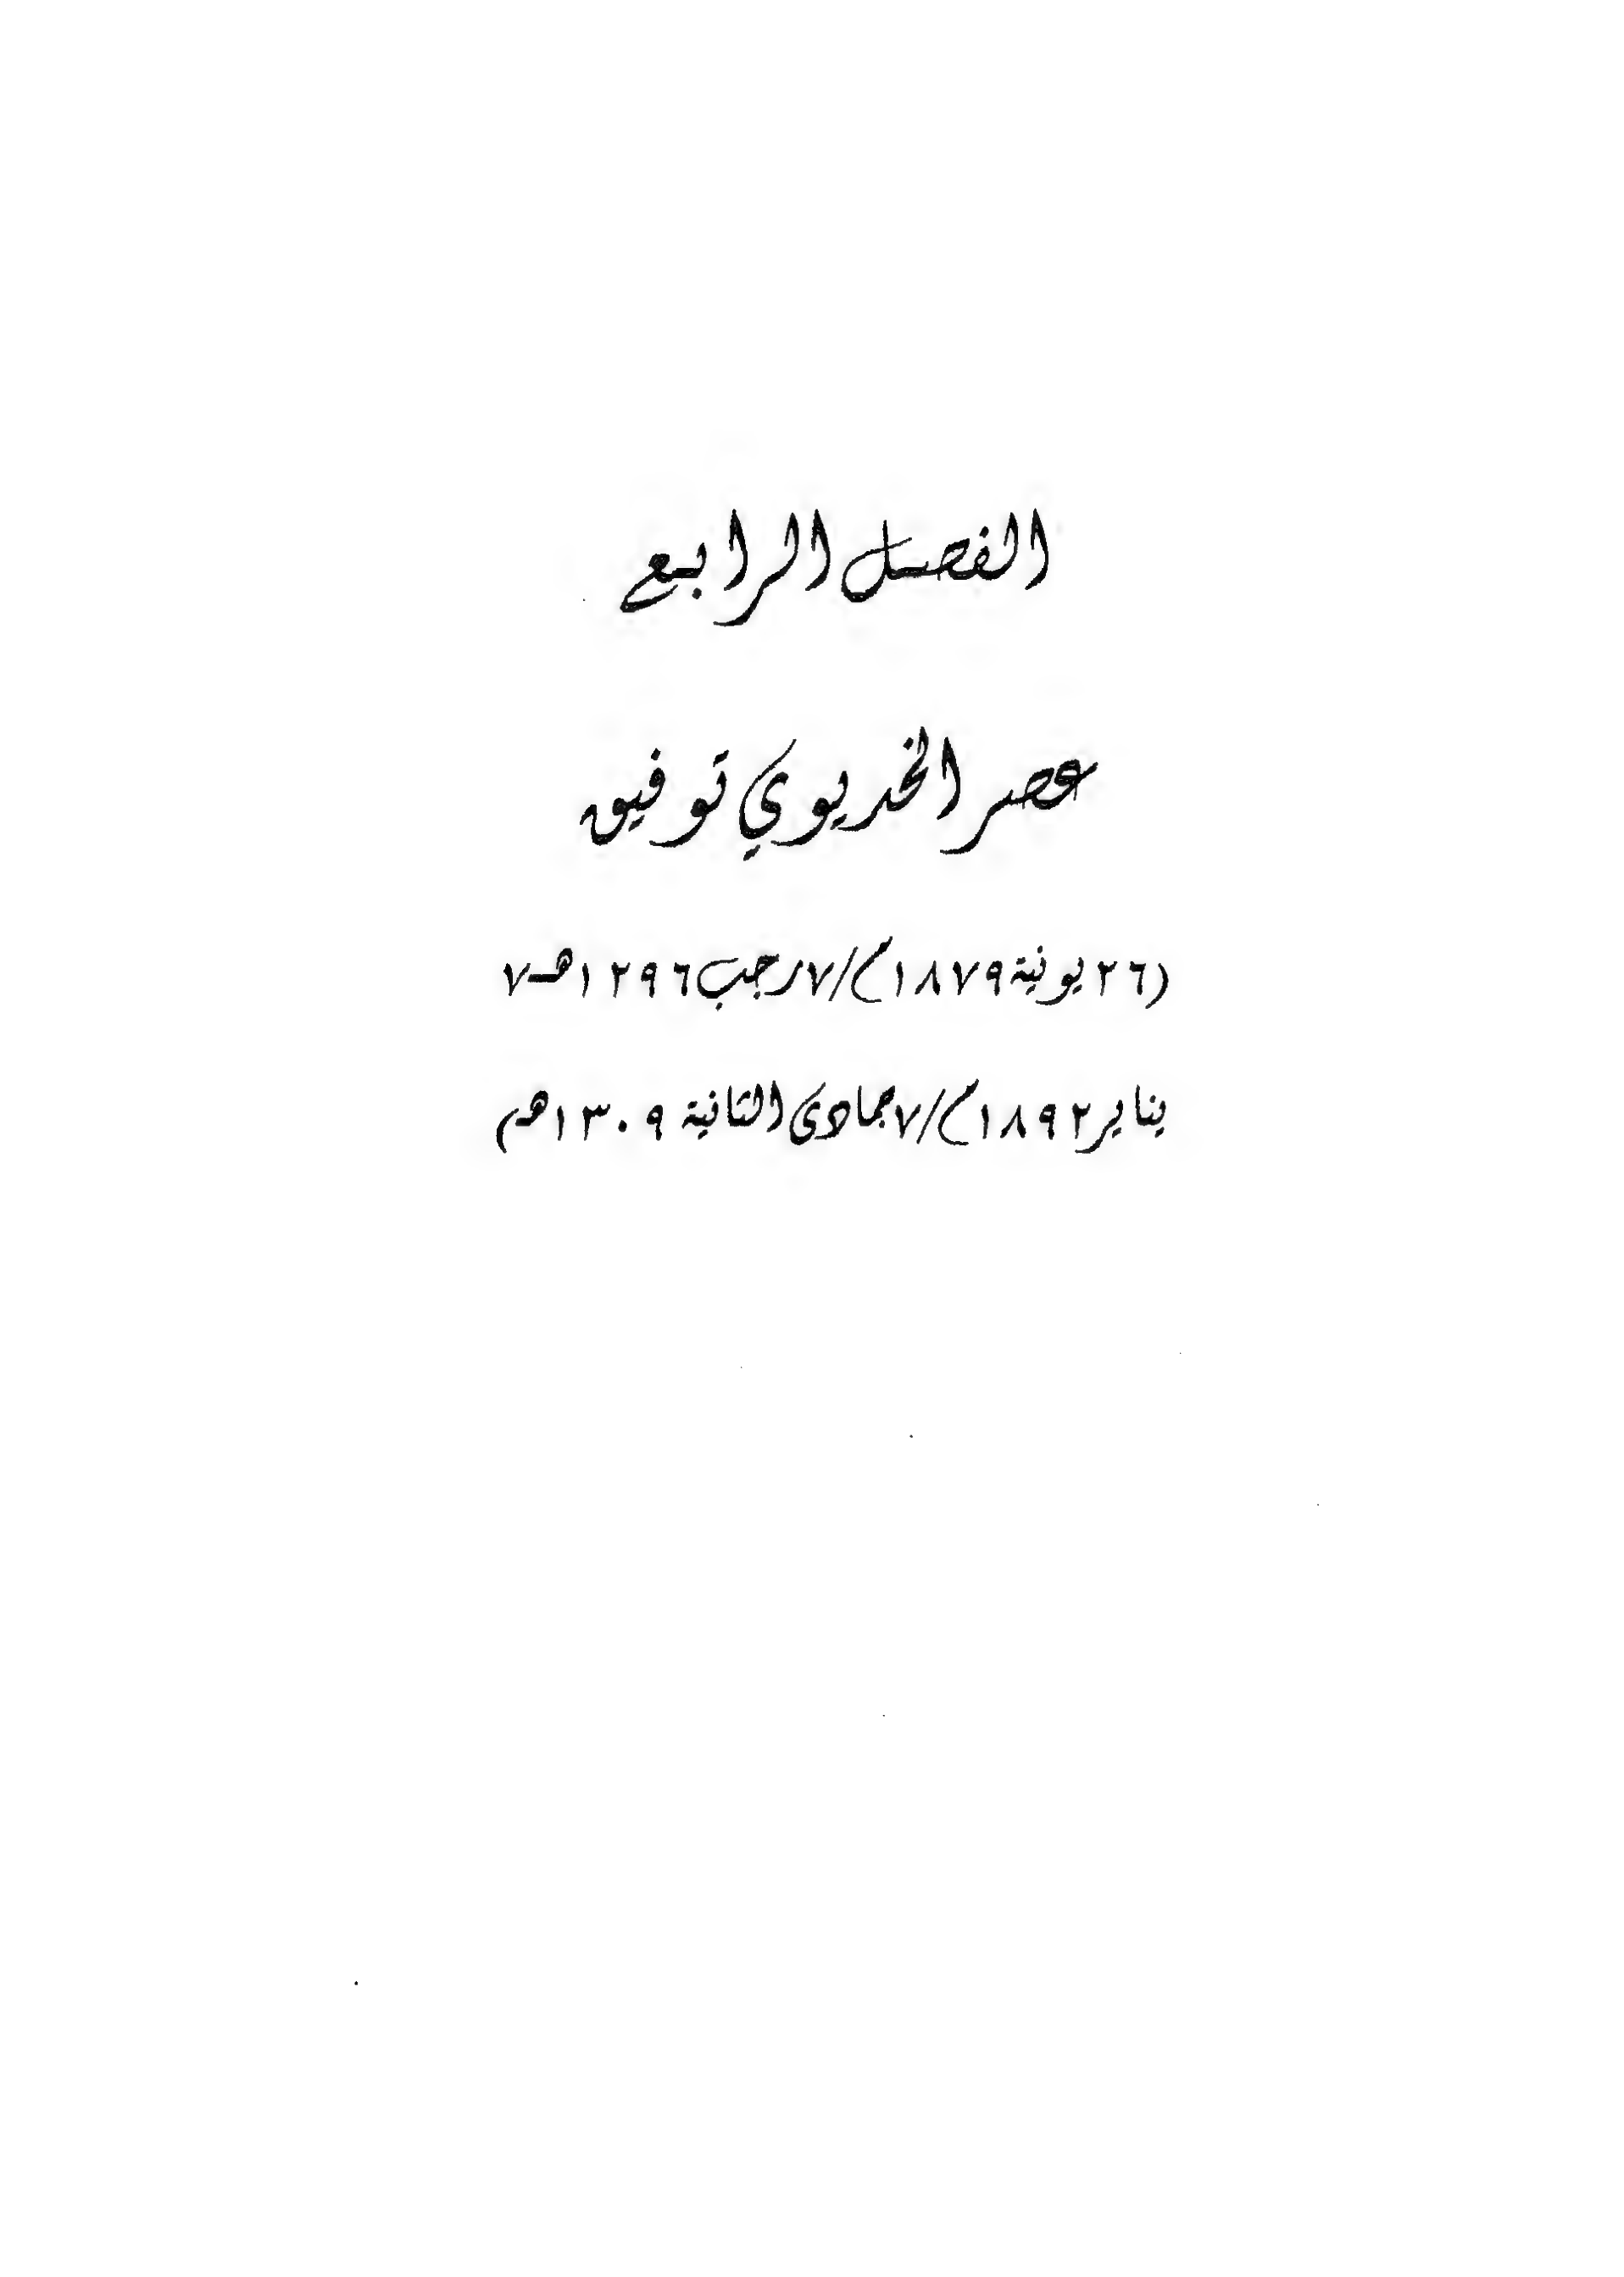 الفصل الرابع
عصر الخديوي توفيق
(٢٦ يونية ١٨٧٩م/٧ رجب ١٢٩٦هـ ٧
يناير ١٨٩٢م/٧ جمادى الثانية ١٣٠٩هـ)